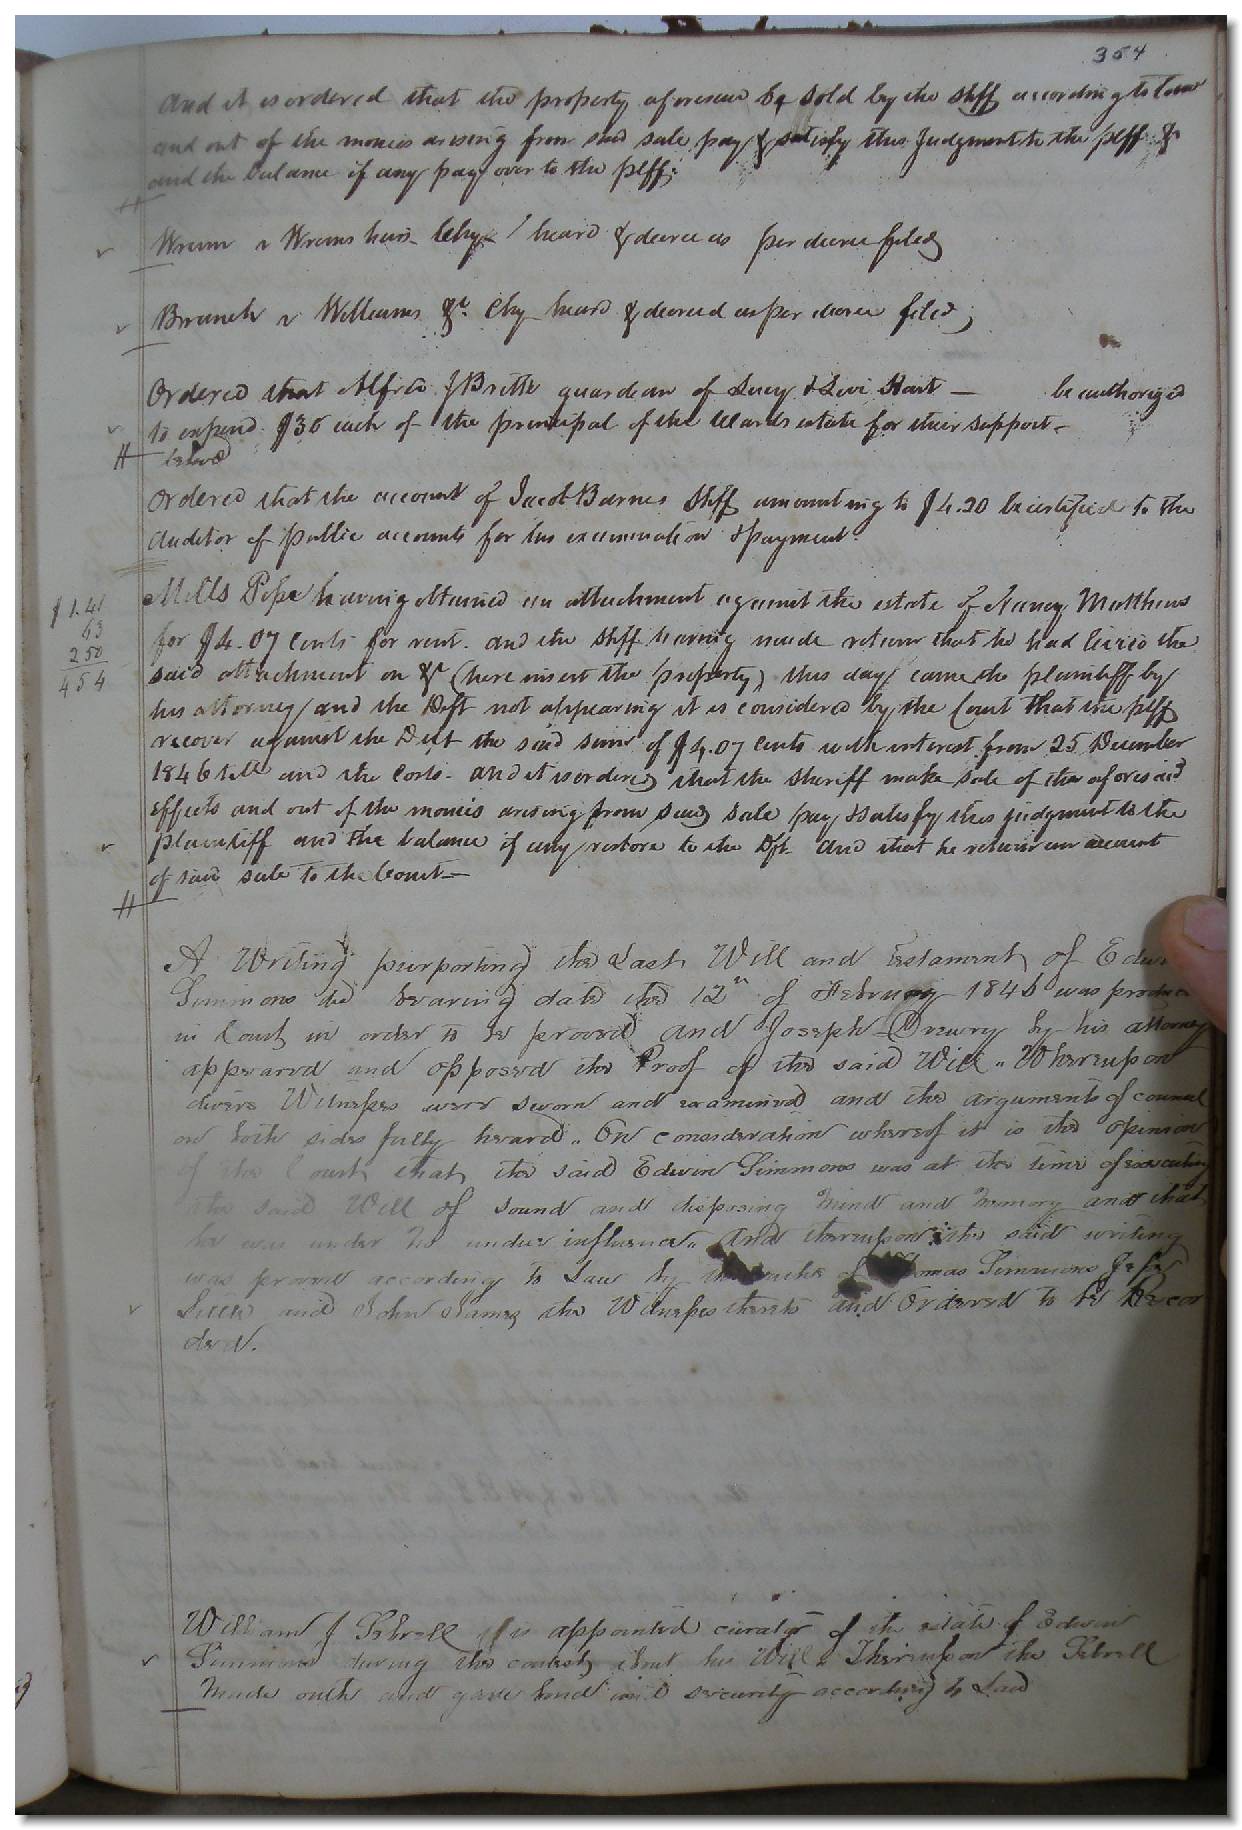 354
And it is ordered that the property aforesaid be sold by the Shff according to law
and out of the monies arising from said sale pay & satisfy this Judgment to the plff &
and the balance if any pay over to the plff;
v Wrenn heirs Chy heard & decree as per decree filed
Branch v Williams &c. Chy heard & decreed as per decree filed;
Ordered that Alfred J Britt guardian of Lucy & Levi Hart — be authorized
to expend $36 each of the principal of the Wards estate for their support—
Ordered that the account of Jacob Barnes Shff amounting to $4.20 be certified to the
Auditor of public accounts for his examination & payment.
$1.41
63
250
454
Mills Pope having obtained an attachment against the estate of Nancy Matthews
for $4.07 cents for rent. and the Shff having made return that he had levied the
said attachment on &c (here insert the property) this day came the plaintiff by
his attorney and the Deft not appearing it is considered by the Court that the plff
recover against the Deft the said sum of $4.07 cents with interest from 25 December
1846 till and the Costs. and it is ordered that the Sheriff make sale of the aforesaid
effects and out of the monies arising from said sale pay & satisfy this judgment to the
plaintiff and the balance if any restore to the Dft. and that he return an account
of said sale to the Court—
A Writing purporting the Last Will and Testament of
Simmons decd bearing date the 12th of February 1846 was
in Court in order to be proved and Joseph Drewry by his attorney
appeared and opposed the Proof of the said Will. Whereupon
divers Witnesses were sworn and examined and the arguments of counsel
on both sides fully heard. On consideration whereof it is the opinion
of the Court that the said Edwin Simmons was at the time of executing
the said Will of sound and disposing Mind and Memory and that
he was under no undue influence. And thereupon the said writing
was proved according to Law by the oaths of Thomas Simmons
and John James the Witnesses thereto and Ordered to be Recor
ded.
William J Sebrell is appointed curator of the estate of Edwin
Simmons during the contest about his Will. Thereupon the Sebrell
Made oath and gave bond and security according to Law